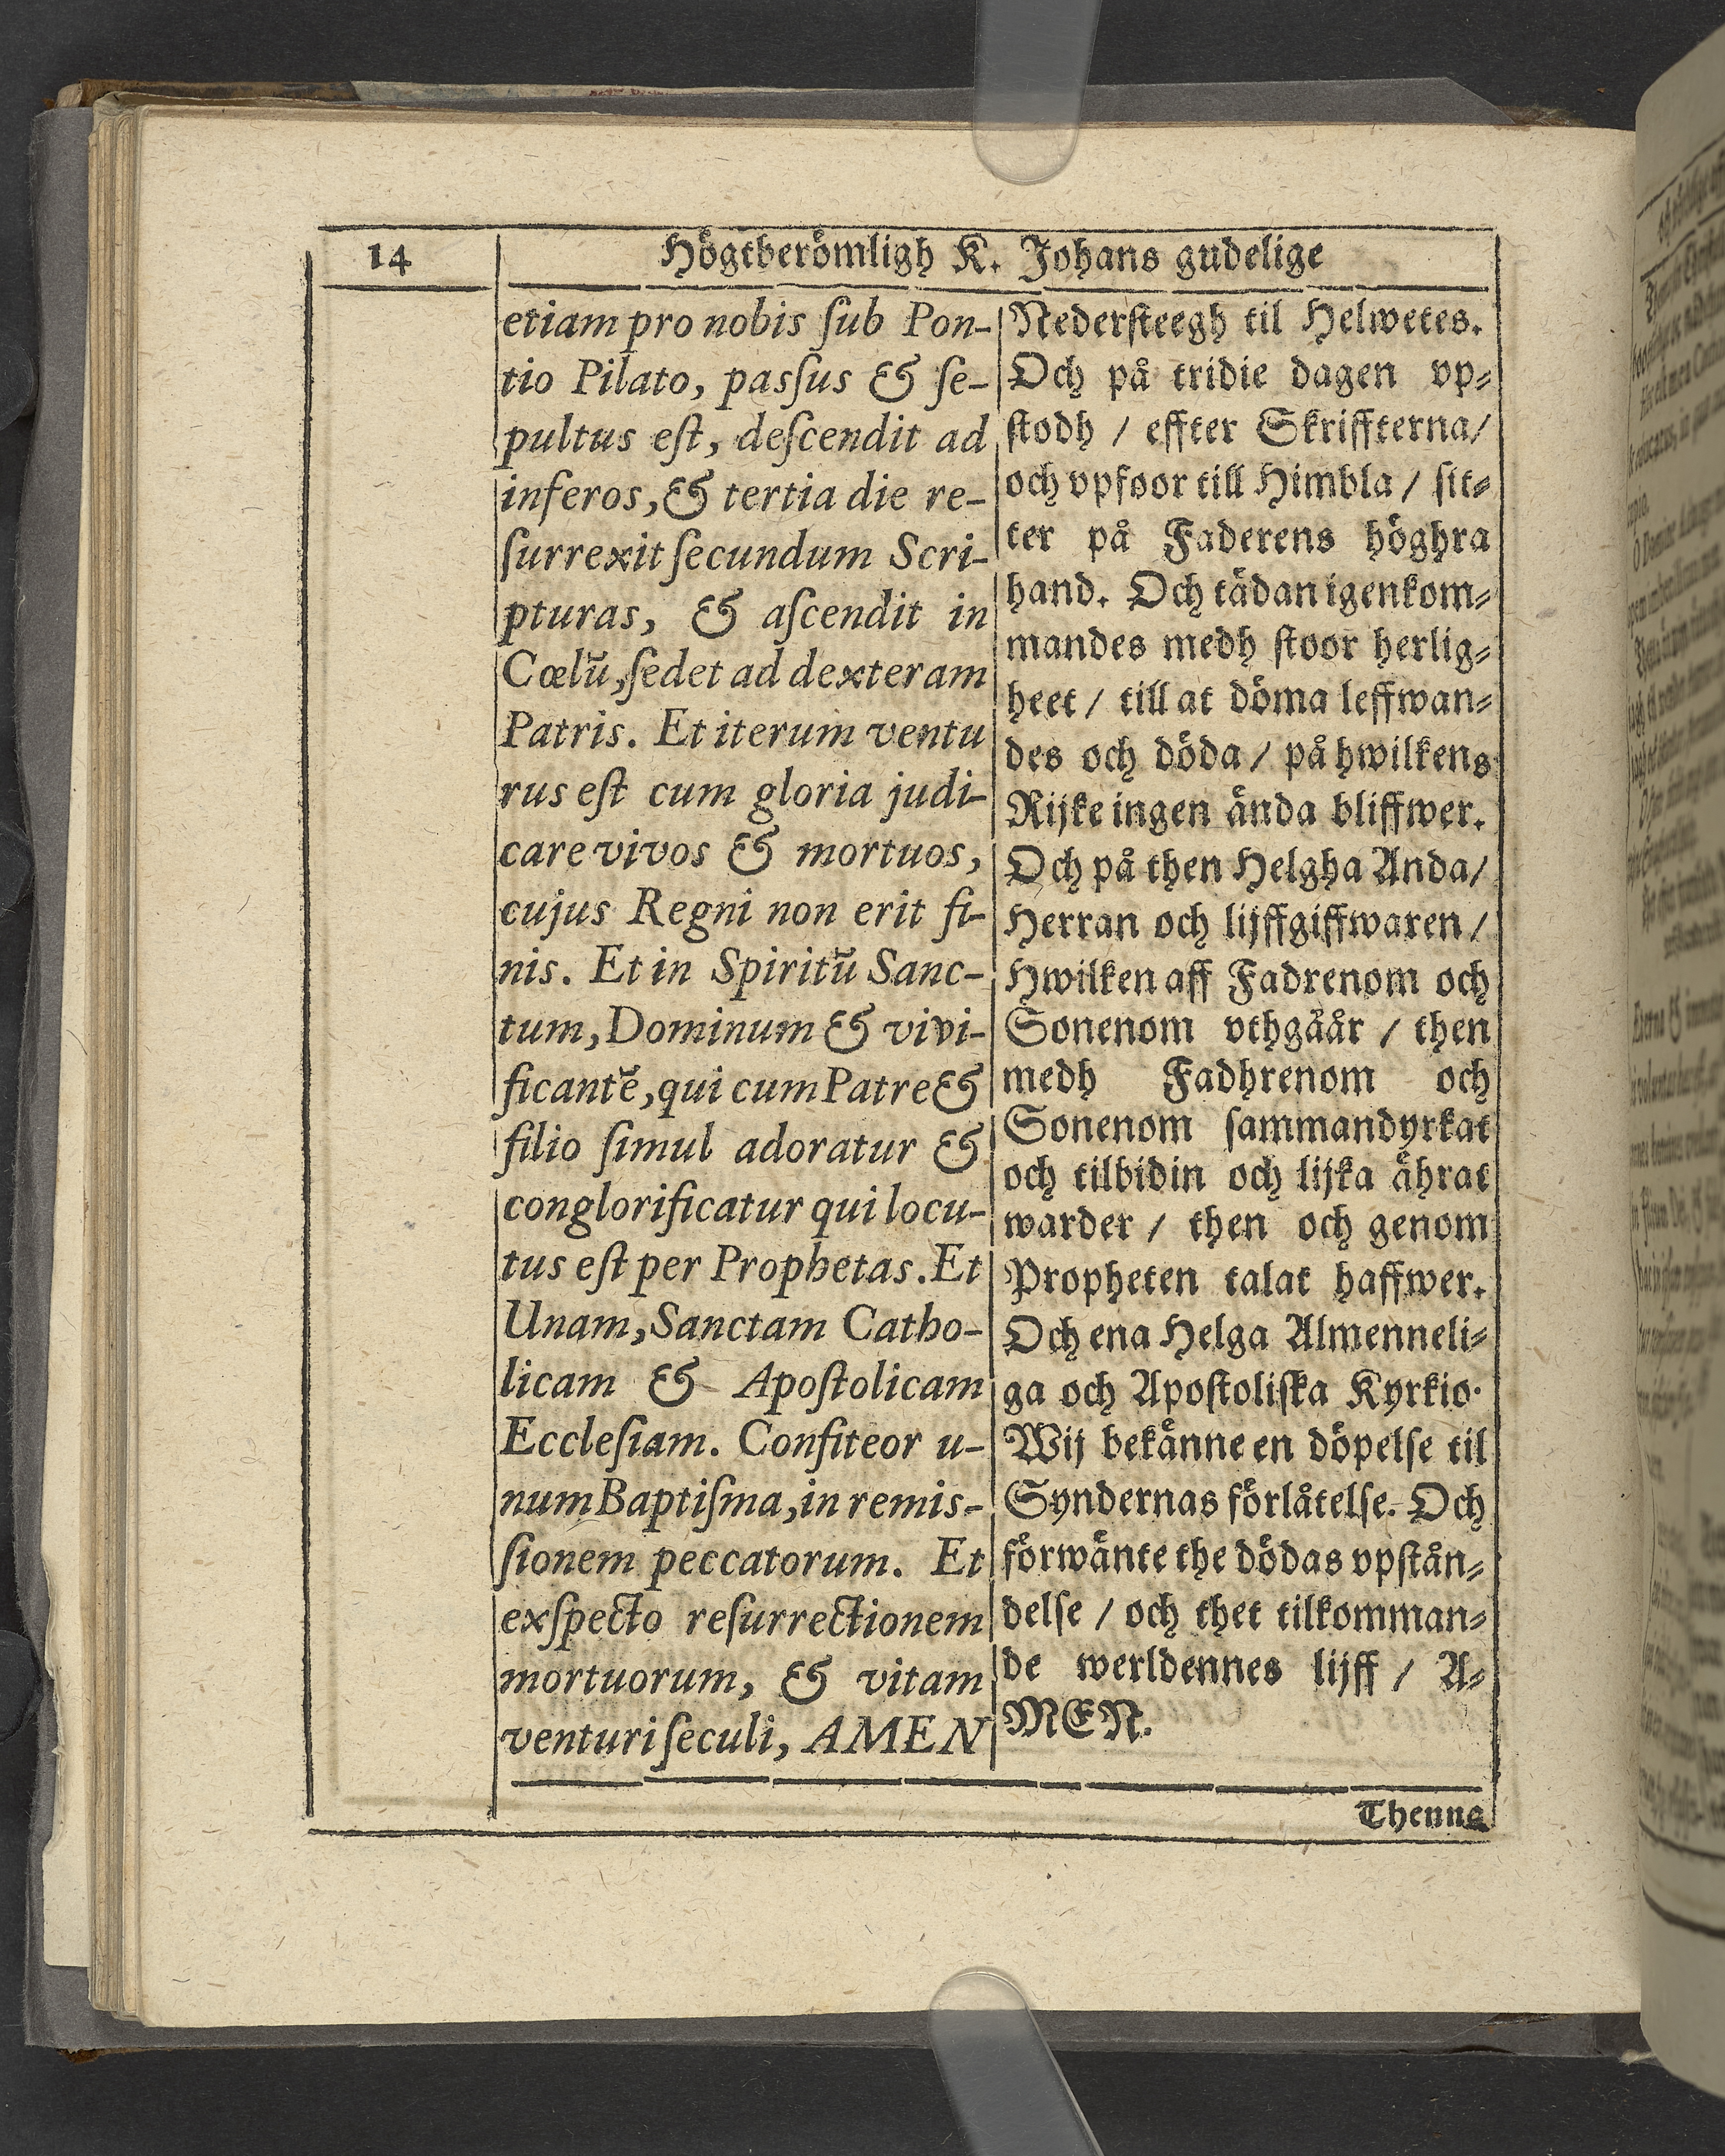 14
Högtberömligh K. Johans gudelige
etiam pro nobis ſub Pon-
tio Pilato, pasſus & ſe-
pultus eſt, deſcendit ad
inferos, & tertia die re-
ſurrexit ſecundum Scri-
pturas, & aſcendit in
Cœlũ, ſedet ad dexteram
Patris. Et iterum ventu
rus eſt cum gloria judi-
care vivos & mortuos,
cujus Regni non erit fi-
nis. Et in Spiritũ Sanc-
tum, Dominum & vivi-
ficantẽ, qui cum Patre &
filio ſimul adoratur &
conglorificatur qui locu-
tus eſt per Prophetas. Et
Unam, Sanctam Catho-
licam & Apoſtolicam
Eccleſiam. Confiteor u-
num Baptiſma, in remis-
ſionem peccatorum. Et
exſpecto reſurrectionem
mortuorum, & vitam
venturi ſeculi, AMEN
Nederſteegh til Helwetes.
Och på tridie dagen vp⸗
ſtodh / effter Skriffterna/
och vpfoor till Himbla / ſit⸗
ter på Faderens höghra
hand. Och tädan igenkom⸗
mandes medh ſtoor herlig⸗
heet / till at döma leffwan⸗
des och döda / på hwilkens
Rijke ingen ända bliffwer.
Och på then Helgha Anda/
Herran och lijffgiffwaren /
Hwilken aff Fadrenom och
Sonenom vthgåår / then
medh Fadhrenom och
Sonenom ſammandyrkat
och tilbidin och lijka ährat
warder / then och genom
Propheten talat haffwer.
Och ena Helga Almenneli⸗
ga och Apoſtoliſka Kyrkio.
Wij bekänne en döpelſe til
Syndernas förlåtelſe. Och
förwänte the dödas vpſtån⸗
delſe / och thet tilkomman⸗
de werldennes lijff / A⸗
MEN.
Thenna